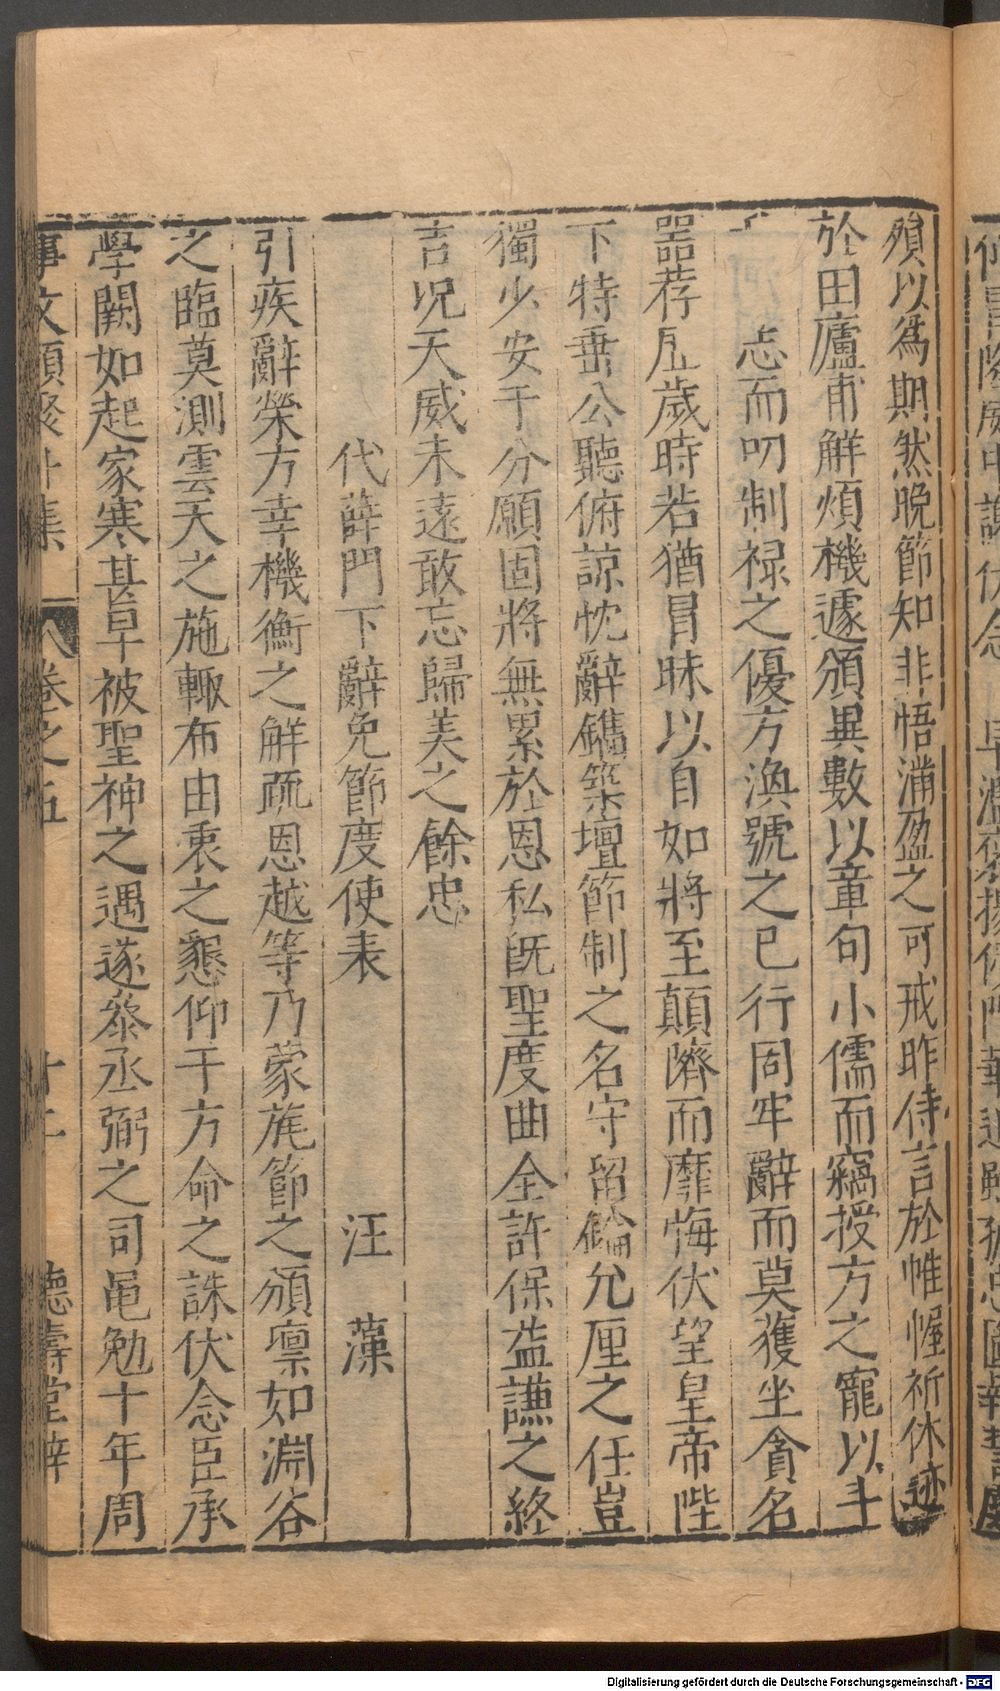 殞以爲期然晚節知非悟滿盈之可戒昨侍言於帷幄祈休迹
於田廬甫解煩機遽頒異數以章句小儒而竊授方之寵以斗
忐而叨制祿之優方渙號之已行固牢辭而莫獲坐貪名
器荐歷歲時若猶冒昧以自如將至顛隮而靡悔伏望皇帝陛
下特垂公聽俯諒忱辭鐫築壇節制之名守留鑰允厘之任豈
獨少安于分願固將無累於恩私旣聖度曲全許保益謙之終
吉況天威未遠敢忘歸美之餘忠
代薛門下辭免節度使表 汪 藻
引疾辭榮方幸機衡之解疏恩越等乃蒙旄節之頒凛如淵谷
之臨莫測雲天之施輙布由衷之懇仰干方命之誅伏念臣承
學闕如起家寒甚早被聖神之遇遂叅丞弼之司黽勉十年周
事文類聚 集 卷之五 十二 德壽堂梓
Digitalisierung gefördert durch die Deutsche Forschungsgemeinschaft - DFG